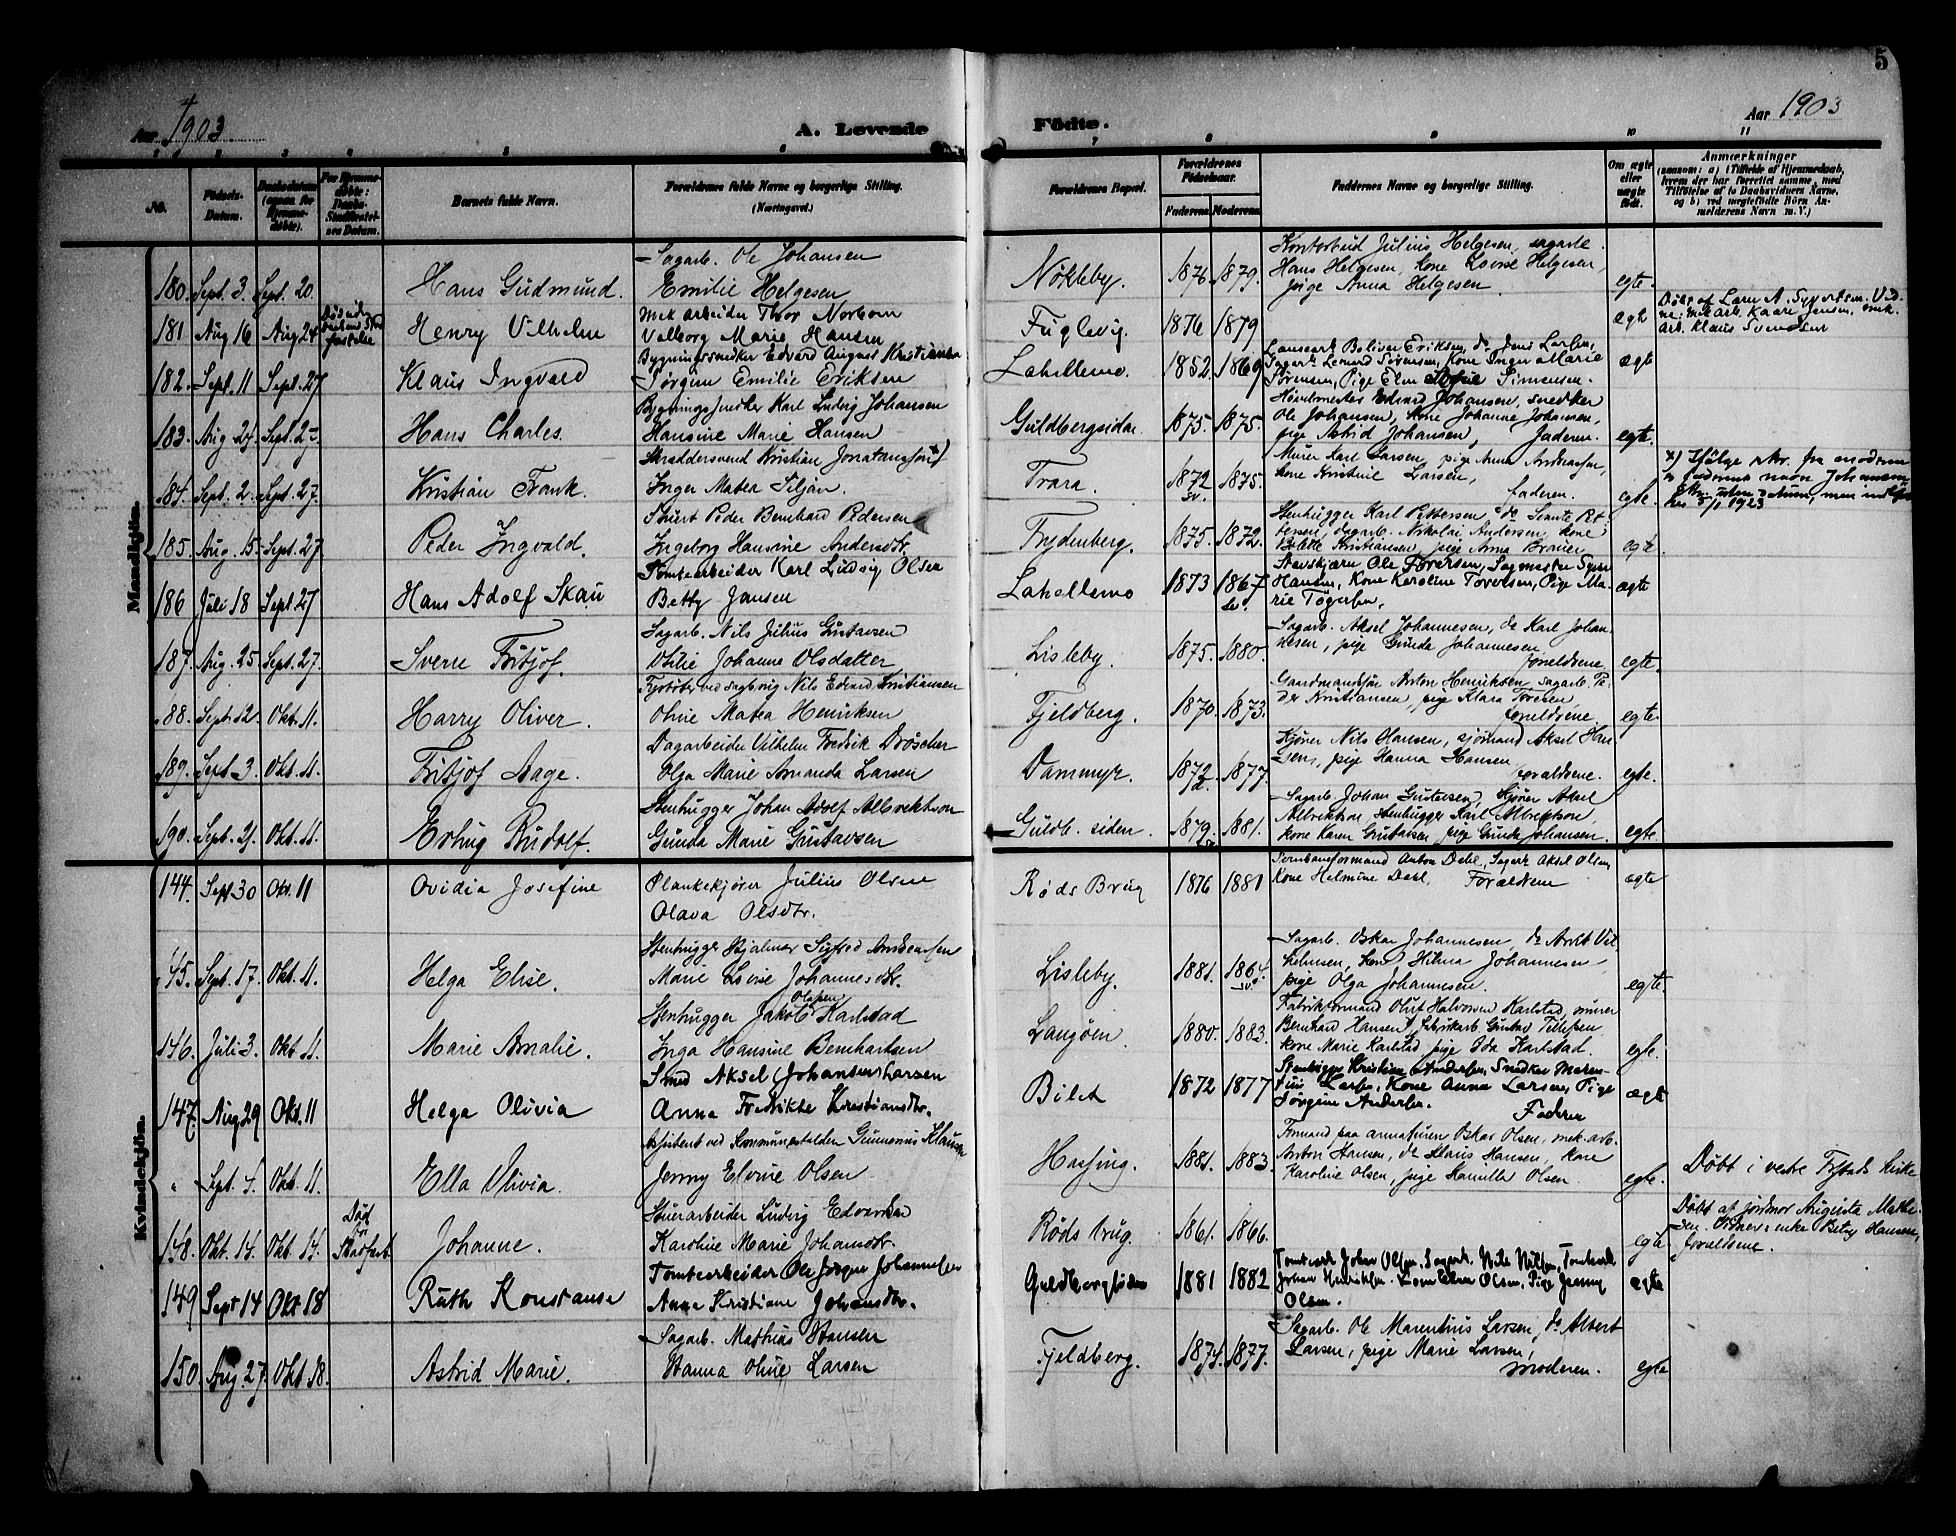 5
Aar 1903.
A. Levende
Fødte.
Aar 1903
No.
Fødsels-
Datum.
Daabsdatum
(ogsaa for
Hjemme-
døbte).
For Hjemme-
døbte:
Daabs-
Stadfæstel-
ses Datum.
Barnets fulde Navn.
Forældrenes fulde Navne og borgerlige Stilling.
(Næringsvei.)
Forældrenes Bopæl.
Forældrenes
Fødselsaar.
Faderens
Moderens
Faddernes Navne og borgerlige Stilling.
Om ægte
eller
uægte
født.
Anmærkninger
(saasom: a) i Tilfælde af Hjemmedaab,
hvem der har forrettet samme, med
Tilføielse af to Daabsvidners Navne,
og b) ved uægtefødte Börn An-
melderens Navn m. V.)
Mandkjön.
180. Sept. 3. Sept. 20. Hans Gudmund.
Sagarb. Ole Johansen
Emilie Helgesen
Nøkleby. 1876. 1879.
Kontorbud Julius Helgesen, sagarb.
Hans Helgesen, kone Lovise Helgesen,
pige Anna Helgesen
egte.
181 Aug 16 Aug 24 Henry Vilhelm
Mek arbeider Thor Norbom
Valborg Marie Hansen
Fuglevig. 1876 1879
ægte
Døbt af Lars A. Syvertsen. Vid-
ne: mek arb. Kaare Jensen, mek.
arb. Klaus Svendsen
182. Sept. 11 Sept. 27 Klaus Ingvald
Bygningssnedker Edvard August Kristiansen
Jørgine Emilie Eriksen
Lahellemo. 1852. 1869
Sørensen, Kone Inger Marie
Sørensen, Pige Elen Sofie Simensen.
ægte
183. Aug 27. Sept. 27 Hans Charles.
Bygningssnedker Karl Ludvig Johansen
Hansine Marie Hansen
Guldbergsiden. 1875. 1875.
Høvelmester Edvard Johansen, snedker
Ole Johansen, kone Johanne Johansen,
pige Astrid Johansen, Faderen.
egte.
184. Sept. 2. Sept. 27. Kristian Frank.
Skræddersvend Kristian Jonatansson x)
Inger Matea Siljan.
Trara. 1872 sv. 1875.
Murer Karl Larsen, pige Anna Andreassen,
kone Kristine Larsen,
Faderen.
egte.
x) Ifølge skr. fra moderen
1923
185. Aug. 15. Sept. 27 Peder Ingvald.
Stuert Peder Bernhard Pedersen
Ingeborg Hansine Andersdtr.
Frydenberg. 1875. 1872.
Stenhugger Karl Pettersen
sagarb. Nikolai Andersen, kone
Kristiansen, pige Anna
egte
186 Juli 18 Sept. 27 Hans Adolf Skau
Tomtearbeider Karl Ludvig Olsen
Betty Jansen
Lahellemo 1873 1867 sv.
Ole Torersen, Sagmester
Hansen, Kone Karoline Torersen, Pige Ma-
rie
ægte
187. Aug. 25. Sept. 27. Sverre Fritjof.
Sagarb. Nils Julius Gustavsen
Otilie Johanne Olsdatter
Lisleby. 1875. 1880.
Sagarb. Aksel Johannesen, do Karl Johan-
nesen, pige Gunda Johannesen
foreldrene
egte.
188. Sept. 12. Okt. 11. Harry Oliver.
Fyrbøter ved sagbrug Nils Edvard Kristiansen
Oline Matea Henriksen
Fjeldberg. 1870. 1873.
Gaardmandssøn Anton Henriksen sagarb. Pe-
der Kristiansen, pige Klara Toresen
foreldrene.
egte.
189. Sept. 3. Okt. 11. Fritjof Aage.
Dagarbeider Vilhelm Fredrik Drøscher
Olga Marie Amanda Larsen
Dammyr. 1872 1877.
Kjører Nils Hansen, sjømand Aksel Han-
sen, pige Hanna Hansen
foreldrene.
egte.
190. Sept. 21. Okt. 11. Erling Rudolf.
Stenhugger Johan Adolf Albrektson
Gunda Marie Gustavsen
Guldb. siden. 1879. 1881.
Sagarb. Johan Gustavsen, kjører Aksel
Albrektson, Stenhugger Karl Albrektson,
kone Karen Gustavsen, pige Gunda Johansen.
egte.
Kvindekjön.
144. Sept 30 Okt. 11 Ovidia Josefine
Plankekjører Julius Olsen
Olava Olsdtr.
Røds Brug 1876 1881
Jernbaneformand Anton Dahl, Sagarb. Aksel Olsen
Kone Helmine Dahl, Forældrene
ægte
145. Sept. 17. Okt. 11. Helga Elise.
Stenhugger Hjalmar Sigfred Andreassen
Marie Lovise Johannesdtr.
Lisleby. 1881. 1864. sv.
Sagarb. Oskar Johannesen, do Arnt Vil-
helmsen, kone Hilma Johannesen,
pige Olga Johannesen.
egte.
146. Juli 3. Okt. 11. Marie Amalie.
Stenhugger Jakob Olafsen Karlstad
Inga Hansine Bernhartsen
Langøen. 1880. 1883.
Fabrikformand Olut Halvorsen Karlstad, murer
Bernhard Hansen, fabrikarb. Gustav Tellefsen
kone Marie Karlstad pige Ida Karlstad.
egte.
147. Aug 29 Okt. 11 Helga Olivia
Smed Aksel (Johansen) Larsen
Anna Fredrikke Kristiansdtr.
Bilet 1872 1877
Stenhugger Kristian Andersen, Snedker Maren-
tius Larsen, Kone Anna Larsen, Pige
Jørgine Andersen. Faderen
ægte
" Sept. 4. Okt. 11. Ella Olivia.
Assistent ved Kommunestælden Gunnerius Klausen
Jenny Elvine Olsen
Hassing. 1881. 1883.
Formand paa armaturen Oskar Olsen, mek. arb.
Anton Hansen, do Klaus Hansen, kone
Karoline Olsen, pige Kamilla Olsen
egte.
Døbt i vestre Fredrikstads kirke
148. Okt. 14. Okt. 14. Død før Stadfæst. Johanne.
Stuerarbeider Ludvig Edvardsen
Karoline Marie Johansdtr.
Røds brug. 1861. 1866.
egte
Døbt af jordmor Augusta Mathi-
sen. Vidner: enke Betzy Hansen,
foreldrene.
149 Sept 14 Okt 18 Ruth Konstanse
Tomtearbeider Ole Jørgen Johannesen
Anna Kristiane Johansdtr.
Guldbergsiden 1881 1882
Tomtearb. Johan Olsen, Sagarb. Nils Nilsen, Tomtearb.
Johan Henriksen, Kone Elen Olsen, Pige Jenny
Olsen.
ægte
150. Aug. 27. Okt. 18. Astrid Marie.
Sagarb. Mathias Hansen
Hanna Oline Larsen
Fjeldberg. 1874. 1877.
Sagarb. Ole Marentius Larsen, do Albert
Larsen, pige Marie Larsen,
moderen.
egte